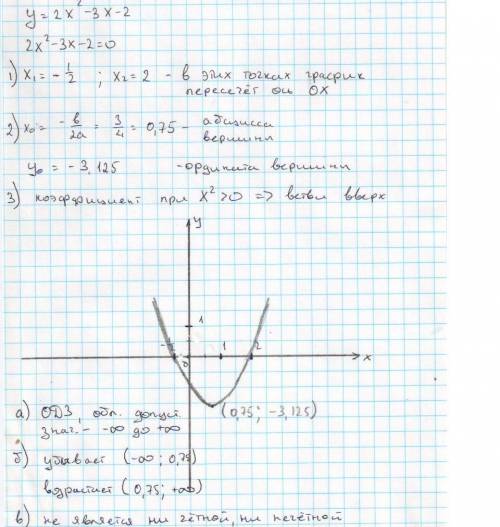 y = 2x² - 3x - 2
2x² - 3x - 2 = 0
1) x₁ = - 1/2 ; x₂ = 2 - в этих точках график
пересечёт ои OX
2) x₀ = -в/2a = 3/4 = 0,75 - абсцисса
вершины
y₀ = - 3,125 - ордината вершины
3) коэффициент при x² > 0 => ветви вверх
y
1
0 1 2 x
(0,75; -3,125)
а) ОДЗ, обл. допуст
знач. - -∞ до +∞
б) убывает (-∞; 0,75)
возрастает (0,75; +∞)
в) не является ни чётной, ни нечётной